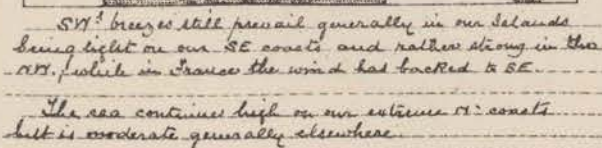 SW.ʸ breezes still prevail generally in our Islands
being light on our SE coasts and rather strong in the
NW., while in France the wind has backed to SE.
The sea continues high on our extreme N: coasts
but is moderate generally elsewhere.